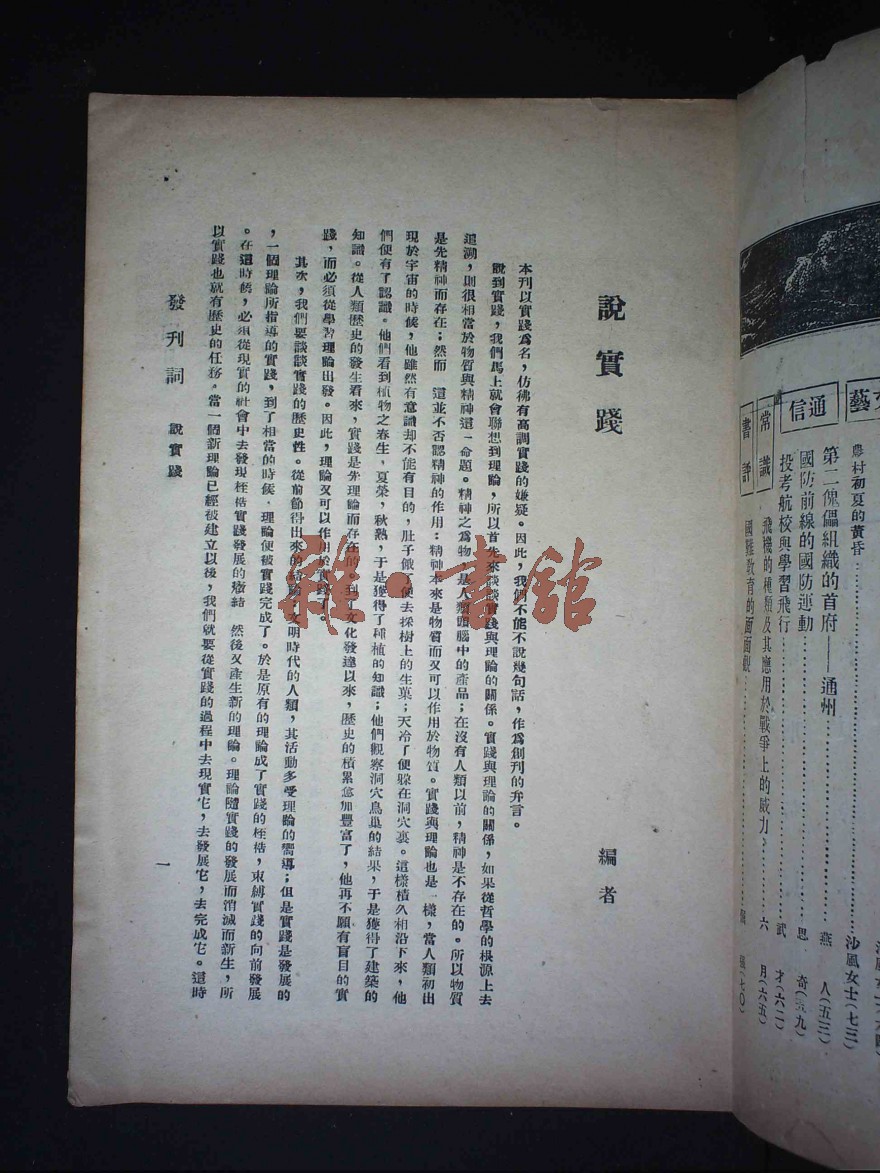 藝文
農村初夏的黃昏……沙風女士(七三)
通信
第二傀儡組織的首府——通州……燕　人(五三)
國防前線的國防運動……思　奇(五九)
投考航校與學習飛行……武　才(六二)
常識
飛機的種類及其應用於戰爭上的威力……六　月(六五)
書評
國難教育的面面觀……(七〇)
說實踐
編者
本刊以實踐爲名，仿彿有高調實踐的嫌疑。因此，我們不能不說幾句話，作爲創刊的弁言。
說到實踐，我們馬上就會聯想到理論，所以首先來談談實踐與理論的關係。實踐與理論的關係，如果從哲學的根源上去
追溯，則很相當於物質與精神這一命題。精神之爲物，是人類頭腦中的產品；在沒有人類以前，精神是不存在的。所以物質
是先精神而存在；然而　這並不否認精神的作用：精神本來是物質而又可以作用於物質。實踐與理論也是一樣，當人類初出
現於宇宙的時候，他雖然有意識却不能有目的，肚子餓了便去採樹上的生菓；天冷了便躱在洞穴裏。這樣積久相沿下來，他
們便有了認識。他們看到植物之春生，夏榮，秋熟，于是獲得了種植的知識；他們觀察洞穴鳥巢的結果，于是獲得了建築的
知識。從人類歷史的發生看來，實踐是先理論而存在的。到了文化發達以來，歷史的積累愈加豐富了，他再不願有盲目的實
踐，而必須從學習理論出發。因此，理論又可以作用於實踐了。
其次，我們要談談實踐的歷史性。從前節得出來的結論，文明時代的人類，其活動多受理論的嚮導；但是實踐是發展的
，一個理論所指導的實踐，到了相當的時候，理論便被實踐完成了。於是原有的理論成了實踐的桎梏，束縛實踐的向前發展
。在這時候，必須從現實的社會中去發現桎梏實踐發展的癥結　然後又產生新的理論。理論隨實踐的發展而消滅而新生，所
以實踐也就有歷史的任務。當一個新理論已經被建立以後，我們就要從實踐的過程中去現實它，去發展它，去完成它。這時
發刊詞　說實踐
一
雜·書館